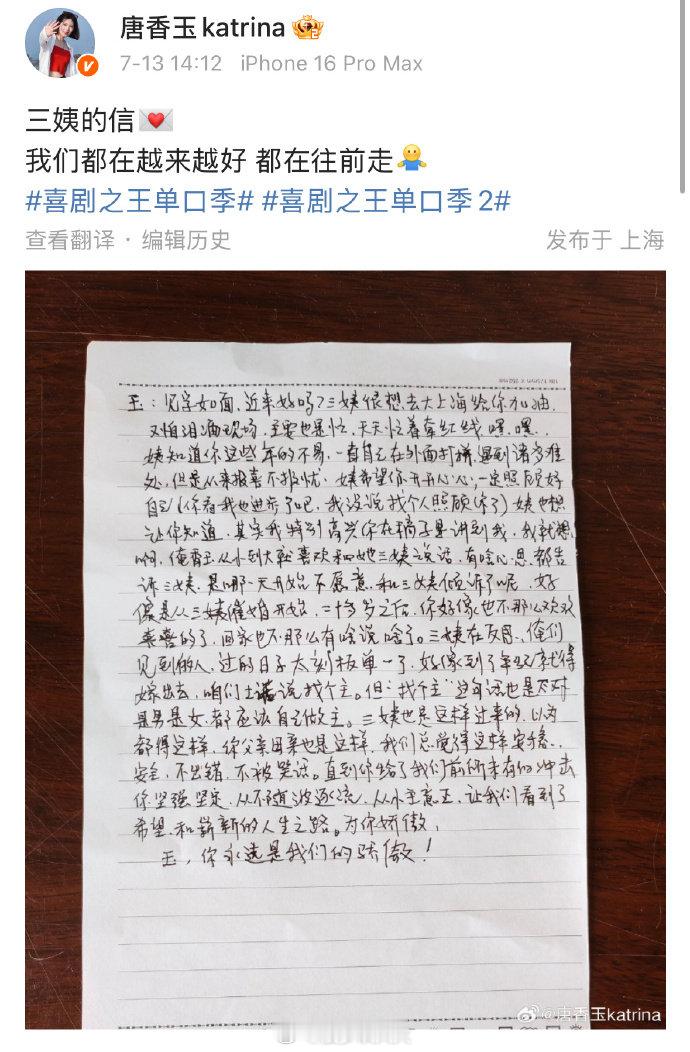 唐香玉katrina
7-13 14:12 iPhone 16 Pro Max
三姨的信💌
我们都在越来越好 都在往前走🤷
#喜剧之王单口季# #喜剧之王单口季2#
查看翻译 · 编辑历史
发布于 上海
玉：见字如面，近来好吗？三姨很想去大上海给你加油，
又怕泪洒现场，主要也是忙，天天忙着牵红线，嘿嘿，
姨知道你这些年的不易，一直自己在外面打拼，遇到诸多难
处，但是从来报喜不报忧，姨希望你开开心心，一定照顾好
自己（你看我也进步了吧，我没说找个人照顾你了）姨也想
让你知道，其实我特别高兴你在稿子里讲到我，我就想
啊，俺香玉从小到大就喜欢和她三姨说话，有啥心思都告
诉三姨，是哪一天开始不愿意和三姨倾诉了呢，好
像是从三姨催婚开始，二十多岁之后，你好像也不那么欢欢
喜喜的了，回家也不那么有啥说啥了。三姨在反思，俺们
见到的人，过的日子太刻板单一了，好像到了年纪就得
嫁出去，咱们土话说找个主。但"找个主"这句话也是不对
是男是女，都应该自己做主。三姨也是这样过来的，以为
都得这样，你父亲母亲也是这样，我们总觉得这样安稳，
安全，不出错，不被笑话。直到你给了我们前所未有的冲击
你坚强坚定，从不随波逐流，从小主意正，让我们看到了
希望，和崭新的人生之路。为你骄傲，
玉，你永远是我们的骄傲！
@唐香玉katrina